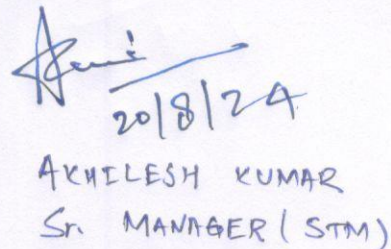 20/8/24
AKHILESH KUMAR
Sr. MANAGER (STM)